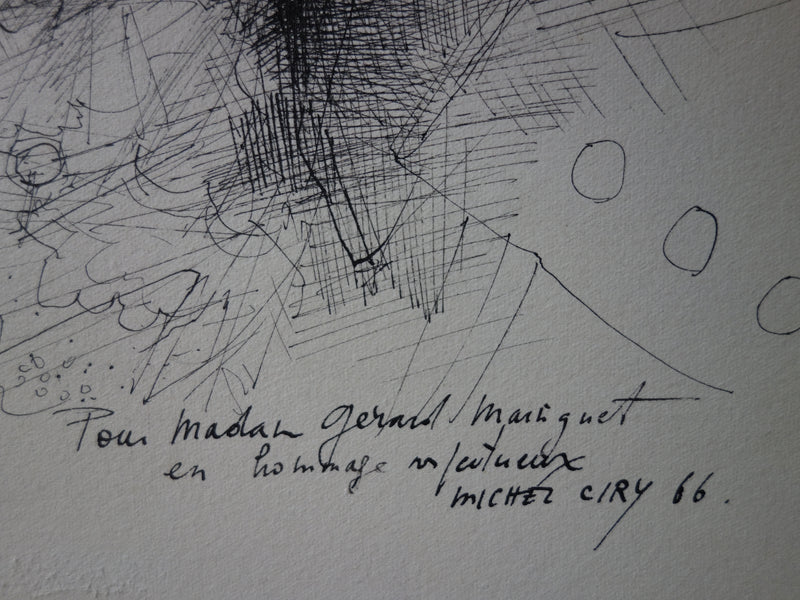 Pour Madame Gerard
en hommage respectueux
MICHEL CIRY 66.